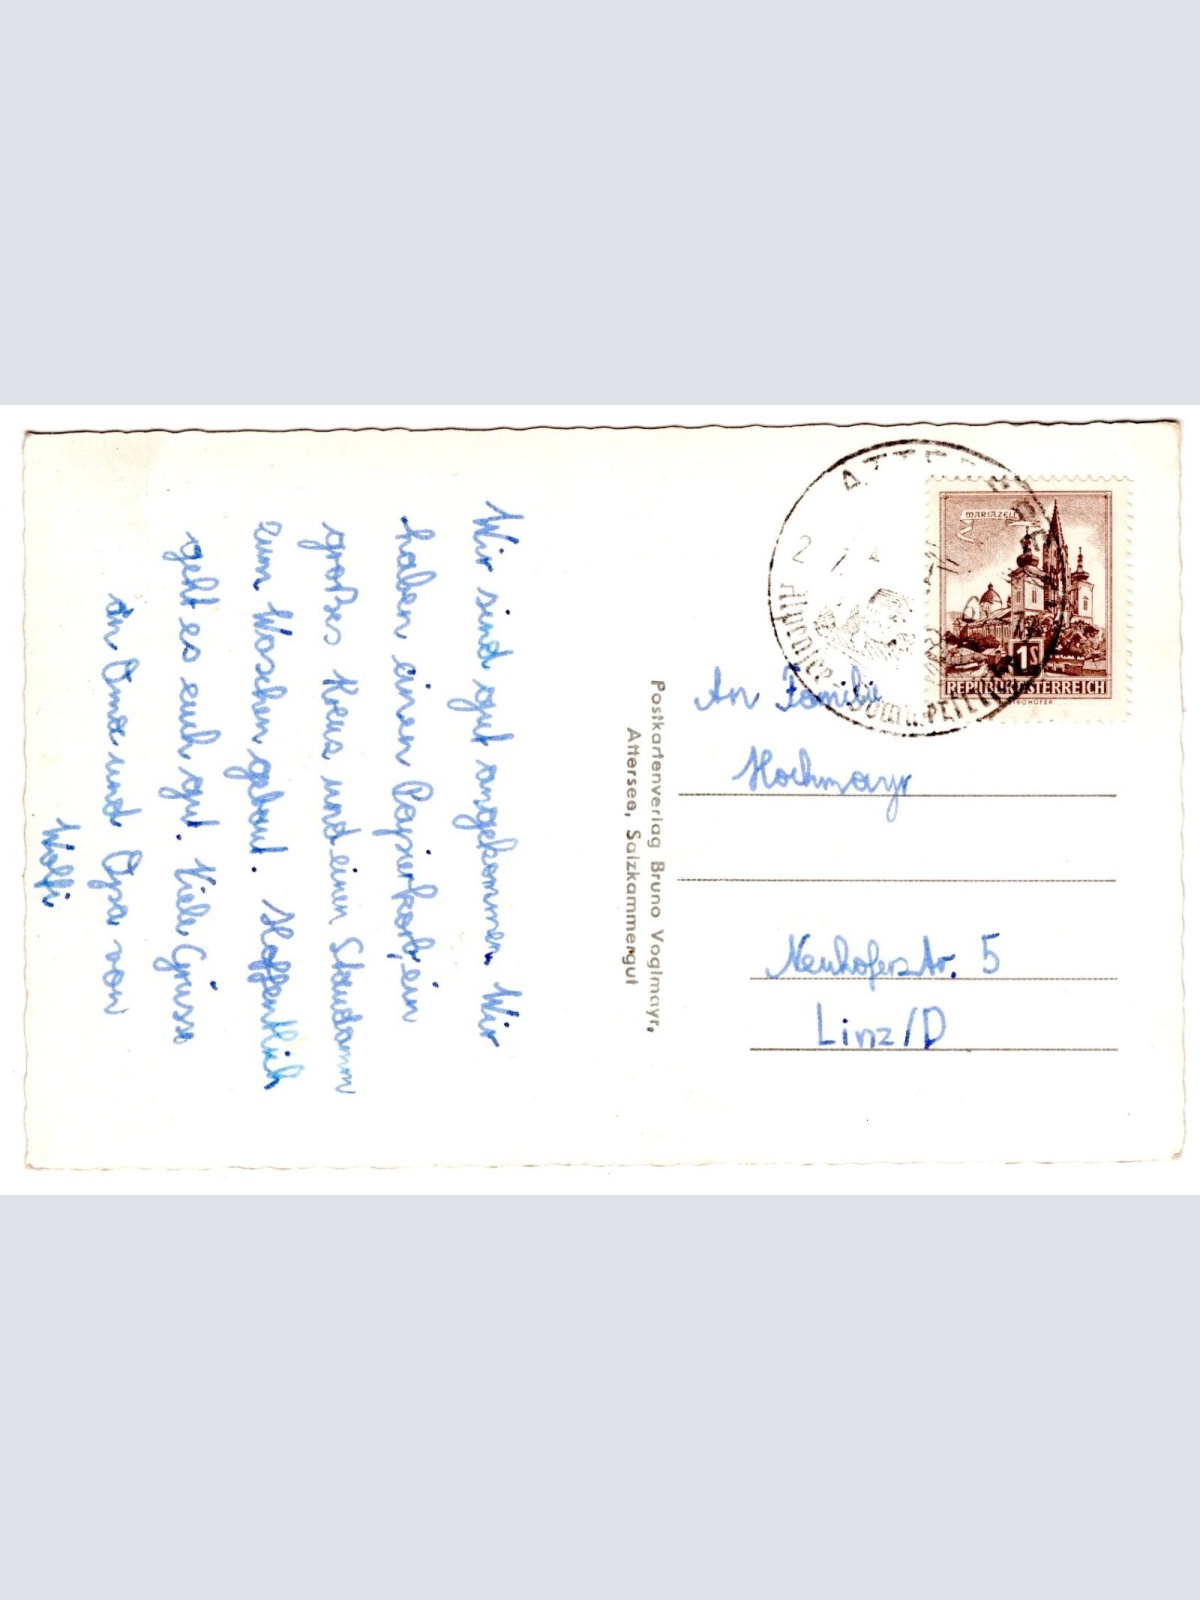 Wir sind gut angekommen. Wir
haben einen Papierkorb, ein
großes Haus und einen Staudamm
zum Waschen gebaut. Hoffentlich
geht es euch gut. Viele Grüsse
an Oma und Opa von
Wolfi
Postkartenverlag Bruno Voglmayr,
Attersee, Salzkammergut
MARIAZELL
1S
REPUBLIK ÖSTERREICH
An Familie
Hochmayr
Neuhoferstr. 5
Linz/D